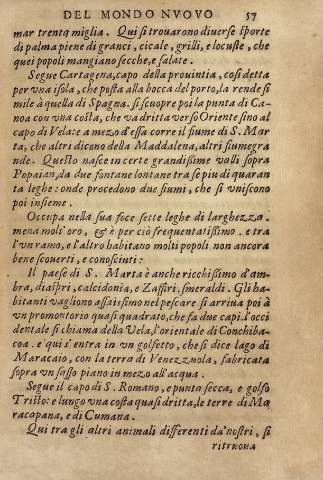 DEL MONDO NVOVO 57
mar trenta miglia. Qui si trouarono diuerse sporte
di palma piene di granci, cicale, grilli, e locuste, che
quei popoli mangiano secche, e salate.
Segue Cartagena, capo della prouintia, cosi detta
per vna isola, che posta alla bocca del porto, la rende si
mile à quella di Spagna. si scuopre poi la punta di Ca-
noa con vna costa, che va dritta verso Oriente sino al
capo di Vela: e a mezo d'essa corre il fiume di S. Mar
ta, che altri dicono della Maddalena, altri fiume gra
nde. Questo nasce in certe grandissime valli sopra
Popaian, da due fontane lontane tra se piu di quaran
ta leghe: onde procedono due fiumi, che si vniscono
poi insieme.
Occupa nella sua foce sette leghe di larghezza.
mena molt'oro, & è per ciò frequentatissimo. e tra
l'vn ramo, e l'altro habitano molti popoli non ancora
bene scouerti, e conosciuti:
Il paese di S. Marta è anche ricchissimo d'am-
bra, diaspri, calcidonia, e Zaffiri, smeraldi. Gli ha-
bitanti vagliono assaissimo nel pescare si arriua poi à
vn promontorio quasi quadrato, che fa due capi. l'occi
dentale si chiama della Vela, l'orientale di Conchiba-
coa. e qui s'entra in vn golfetto, che si dice lago di
Maracaio, con la terra di Venezzuola, fabricata
sopra vn sasso piano in mezo all'acqua.
Segue il capo di S. Romano, e punta secca, e golfo
Tristo: e lungo vna costa quasi dritta, le terre di Ma
racopana, e di Cumana.
Qui tra gli altri animali differenti da'nostri, si
ritruoua